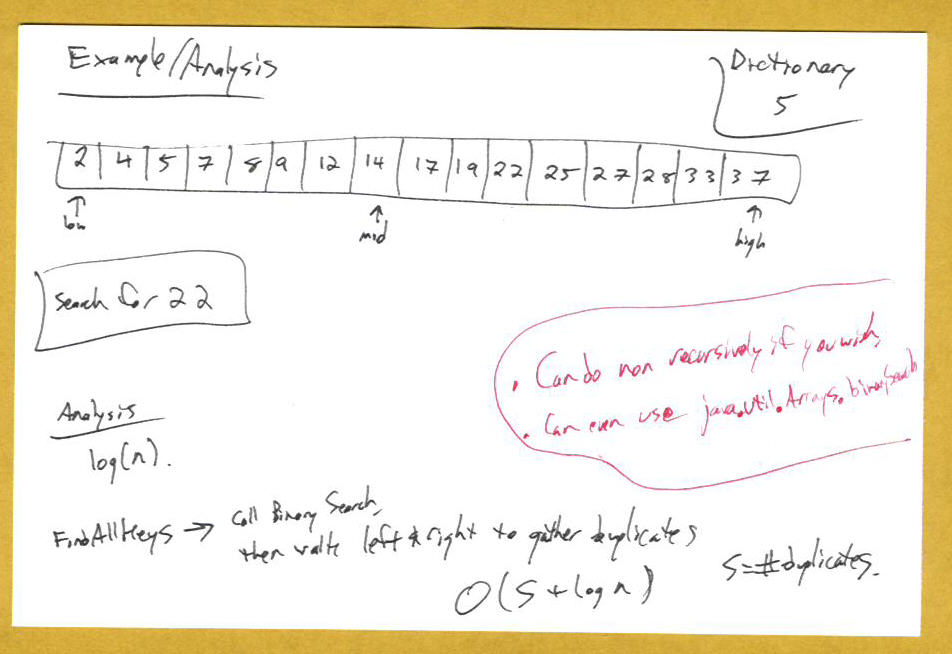 Example/Analysis
Dictionary
5
2 4 5 7 8 9 12 14 17 19 22 25 27 28 33 37
low mid high
Search for 22
. Can do non recursively if you wish,
. Can even use java.util.Arrays.binarySearch
Analysis
log(n).
FindAllKeys → Call Binary Search,
then walk left & right to gather duplicates
O(s + log n)
s = # duplicates.